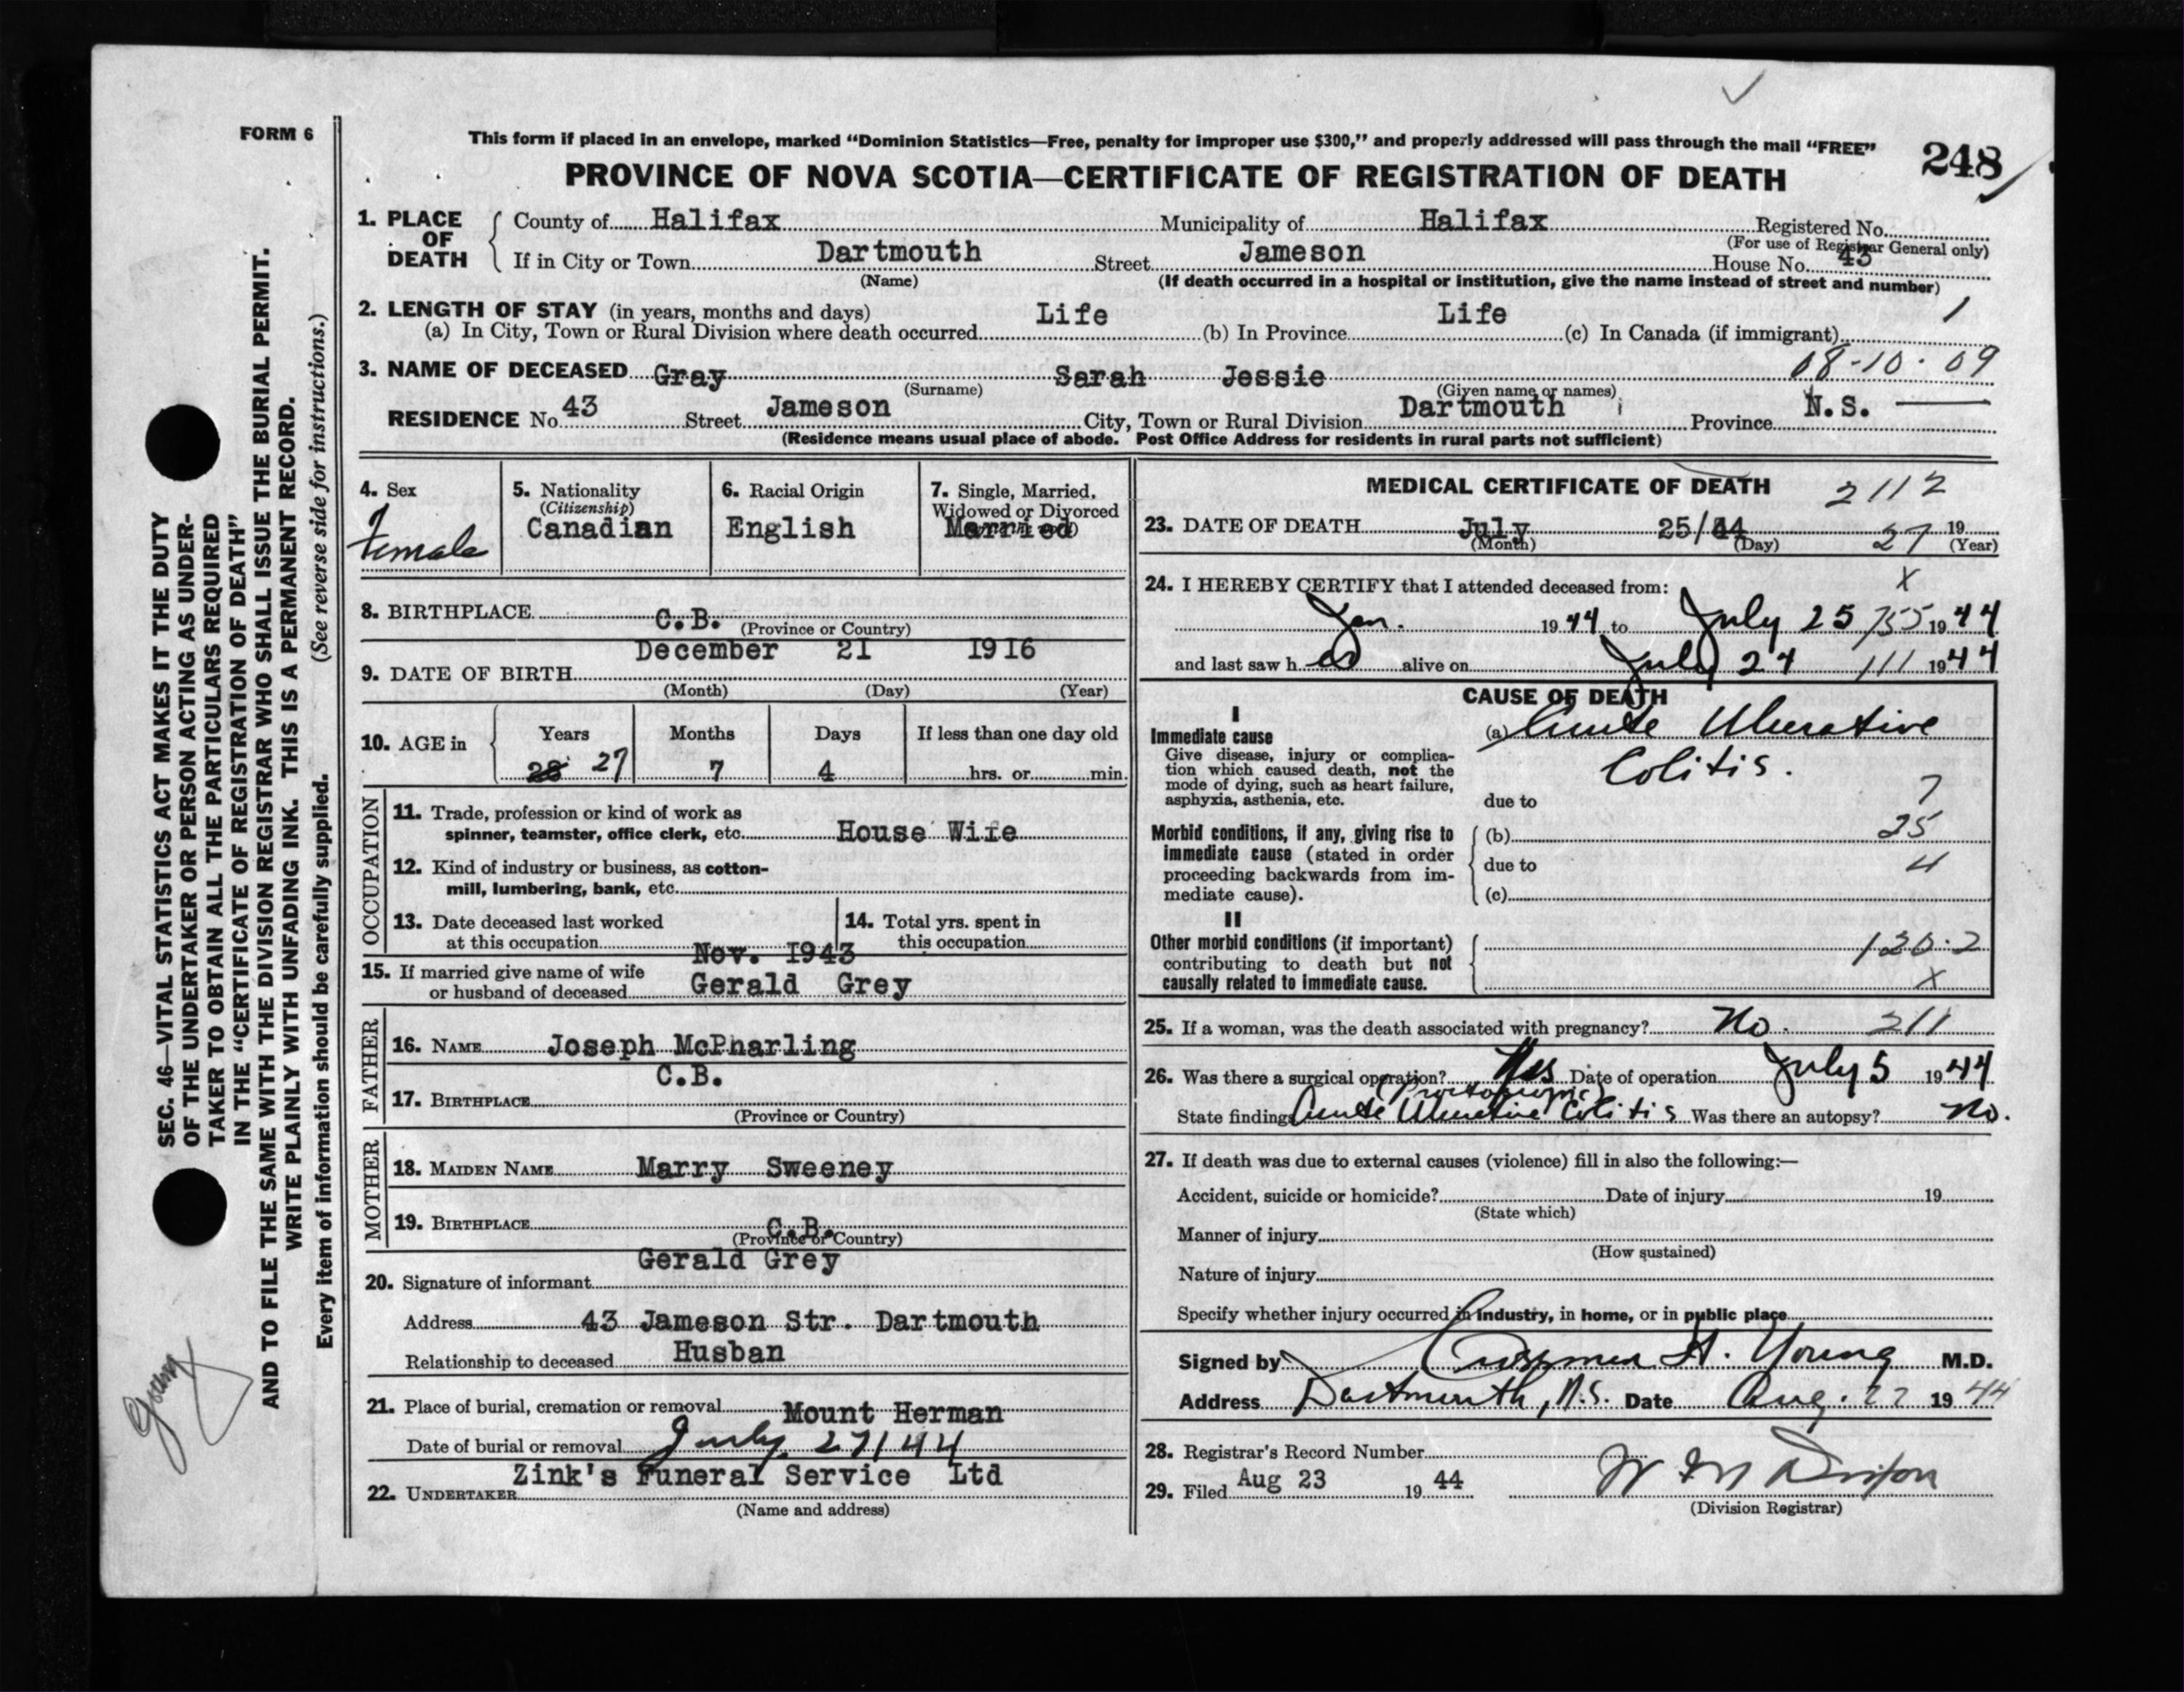 FORM 6
This form if placed in an envelope, marked “Dominion Statistics—Free, penalty for improper use $300,” and properly addressed will pass through the mail “FREE”
248
PROVINCE OF NOVA SCOTIA—CERTIFICATE OF REGISTRATION OF DEATH
1. PLACE OF DEATH
County of Halifax Municipality of Halifax Registered No.
(For use of Registrar General only)
If in City or Town Dartmouth Street Jameson House No. 43
(Name) (If death occurred in a hospital or institution, give the name instead of street and number)
2. LENGTH OF STAY (in years, months and days) 1
(a) In City, Town or Rural Division where death occurred Life (b) In Province Life (c) In Canada (if immigrant)
08-10-09
3. NAME OF DECEASED Gray Sarah Jessie
(Surname) (Given name or names)
RESIDENCE No 43 Street Jameson City, Town or Rural Division Dartmouth Province N.S.
(Residence means usual place of abode. Post Office Address for residents in rural parts not sufficient)
4. Sex
Female
5. Nationality
(Citizenship)
Canadian
6. Racial Origin
English
7. Single, Married,
Widowed or Divorced
Married
8. BIRTHPLACE C.B.
(Province or Country)
9. DATE OF BIRTH December 21 1916
(Month) (Day) (Year)
10. AGE in Years Months Days If less than one day old
28 27 7 4 hrs. or min.
OCCUPATION
11. Trade, profession or kind of work as
spinner, teamster, office clerk, etc. House Wife
12. Kind of industry or business, as cotton-
mill, lumbering, bank, etc.
13. Date deceased last worked
at this occupation Nov. 1943
14. Total yrs. spent in
this occupation
15. If married give name of wife
or husband of deceased Gerald Grey
FATHER
16. NAME Joseph McPharling
17. BIRTHPLACE C.B.
(Province or Country)
MOTHER
18. MAIDEN NAME Marry Sweeney
19. BIRTHPLACE C.B.
(Province or Country)
20. Signature of informant Gerald Grey
Address 43 Jameson Str. Dartmouth
Relationship to deceased Husban
21. Place of burial, cremation or removal Mount Herman
Date of burial or removal July 27/44
22. UNDERTAKER Zink's Funeral Service Ltd
(Name and address)
MEDICAL CERTIFICATE OF DEATH 2112
23. DATE OF DEATH July 25/44 27 19
(Month) (Day) (Year)
24. I HEREBY CERTIFY that I attended deceased from: X
Jan. 1944 to July 25 755 1944
and last saw h er alive on July 24 111 1944
CAUSE OF DEATH
I
Immediate cause
Give disease, injury or complica-
tion which caused death, not the
mode of dying, such as heart failure,
asphyxia, asthenia, etc.
(a) Acute Ulcerative
Colitis.
due to 7
Morbid conditions, if any, giving rise to
immediate cause (stated in order
proceeding backwards from im-
mediate cause).
(b) 25
due to 4
(c)
II
Other morbid conditions (if important)
contributing to death but not
causally related to immediate cause.
120.2
X
25. If a woman, was the death associated with pregnancy? No. 211
26. Was there a surgical operation? Yes Date of operation July 5 1944
State findings Acute Ulcerative Colitis Was there an autopsy? No.
27. If death was due to external causes (violence) fill in also the following:—
Accident, suicide or homicide? Date of injury 19
(State which)
Manner of injury
(How sustained)
Nature of injury
Specify whether injury occurred in industry, in home, or in public place
Signed by H. Young M.D.
Address Dartmouth, N.S. Date Aug. 22 1944
28. Registrar's Record Number
29. Filed Aug 23 19 44
(Division Registrar)
SEC. 46—VITAL STATISTICS ACT MAKES IT THE DUTY
OF THE UNDERTAKER OR PERSON ACTING AS UNDER-
TAKER TO OBTAIN ALL THE PARTICULARS REQUIRED
IN THE “CERTIFICATE OF REGISTRATION OF DEATH”
AND TO FILE THE SAME WITH THE DIVISION REGISTRAR WHO SHALL ISSUE THE BURIAL PERMIT.
WRITE PLAINLY WITH UNFADING INK. THIS IS A PERMANENT RECORD.
Every item of information should be carefully supplied. (See reverse side for instructions.)